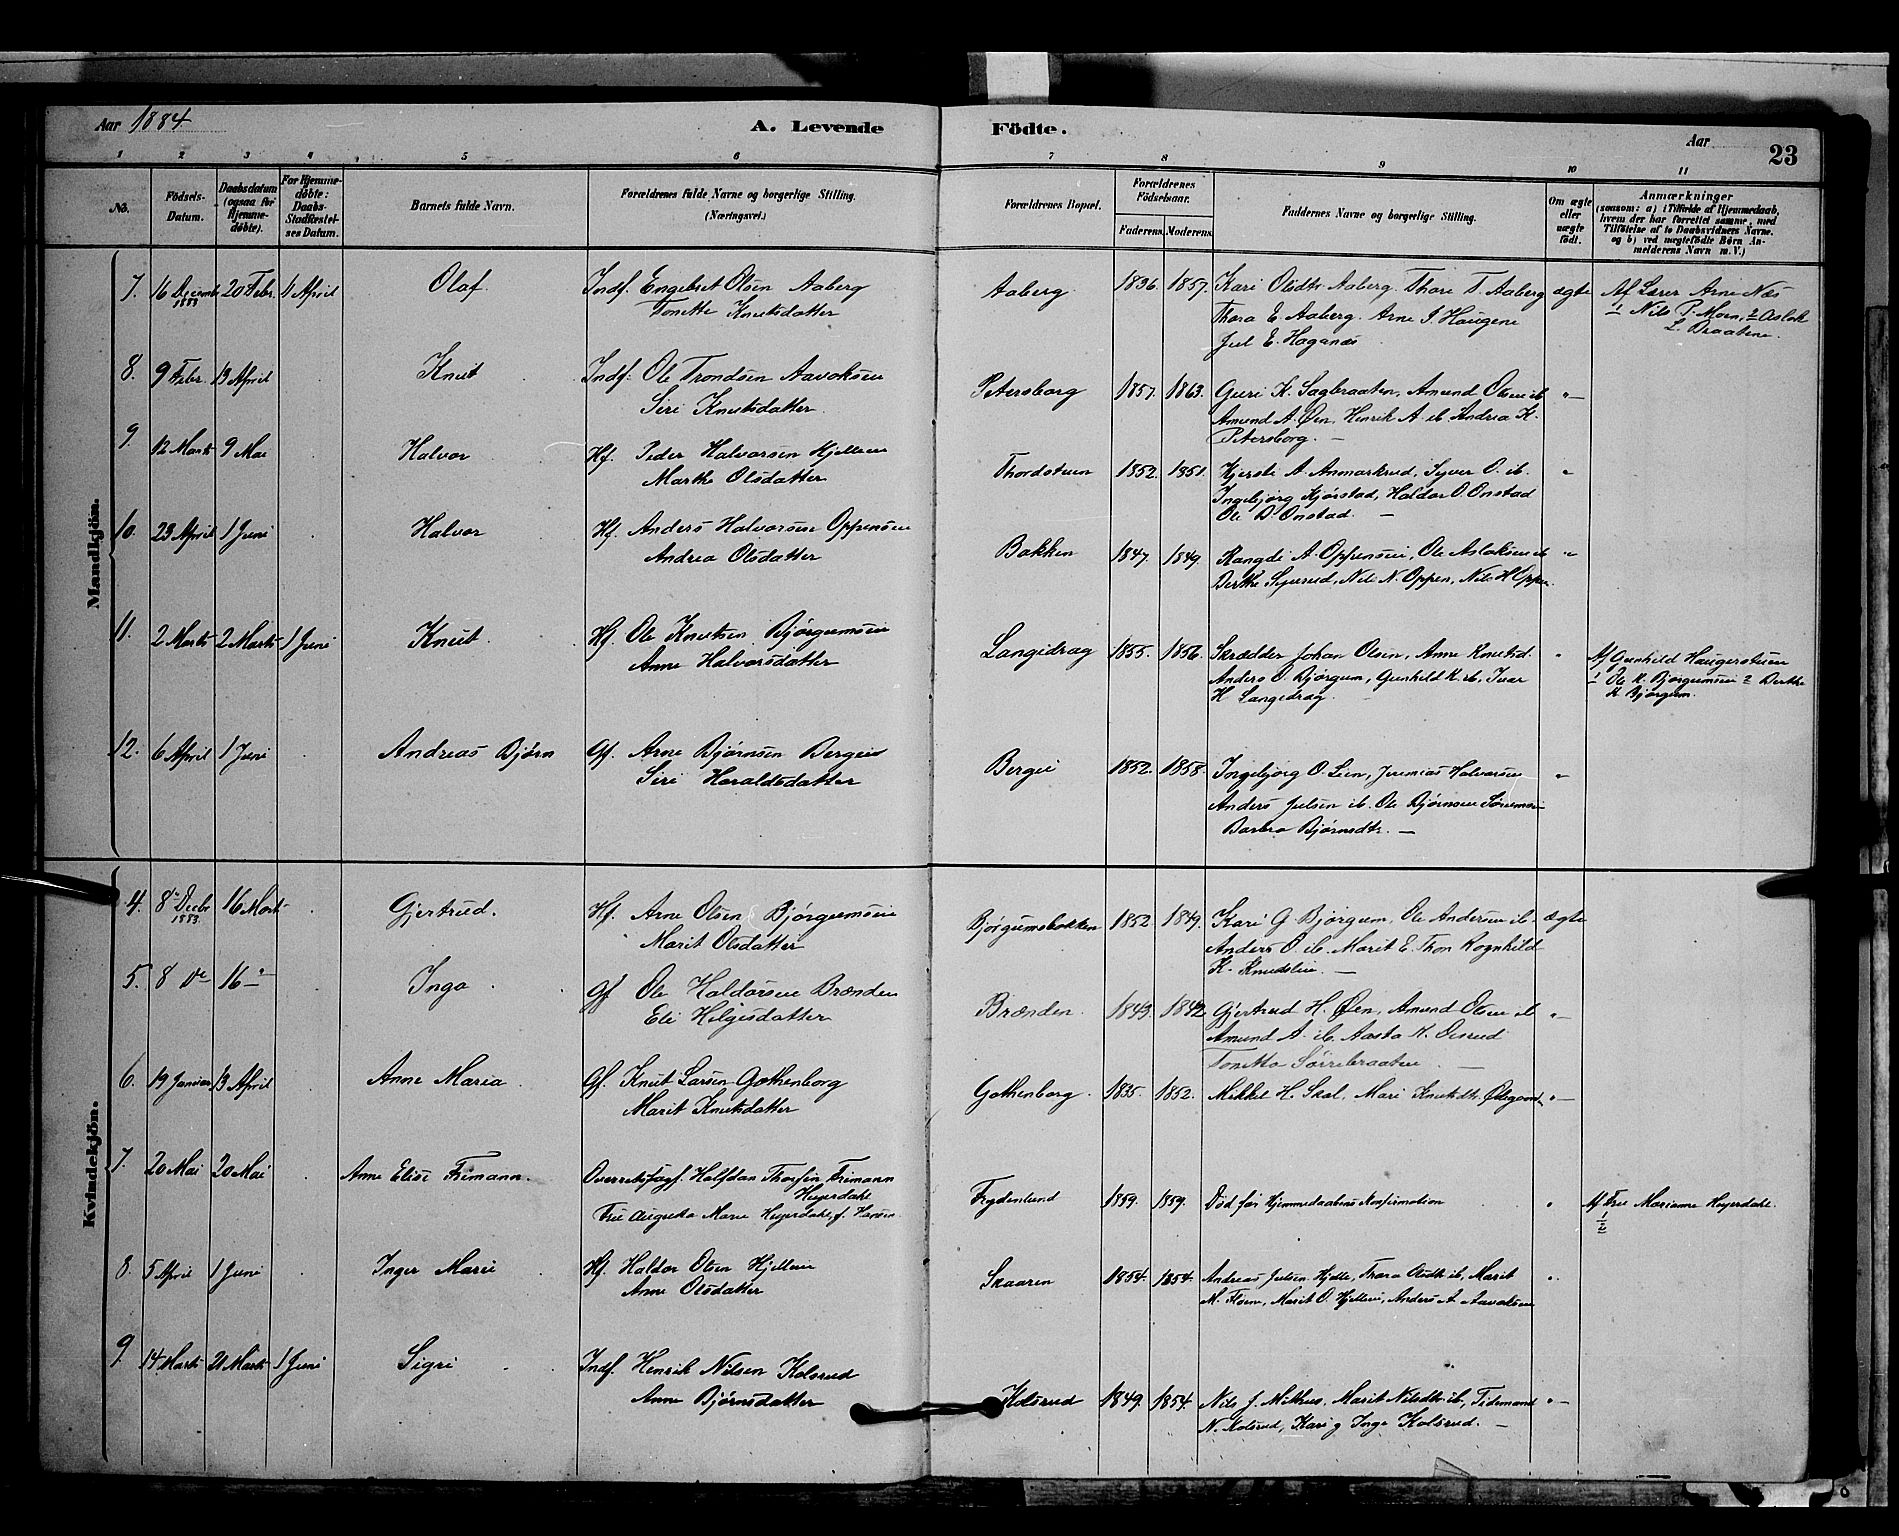 Aar 1884
A. Levende Födte.
Aar
23
1 2 3 4 5 6 7 8 9 10 11
No.
Fødsels-Datum.
Daabsdatum (ogsaa for Hjemmedøbte).
For Hjemmedøbte: Daabs-Stadfæstelses Datum.
Barnets fulde Navn.
Forældrenes fulde Navne og borgerlige Stilling. (Næringsvei.)
Forældrenes Bopæl.
Forældrenes Fødselsaar.
Faderens. Moderens.
Faddernes Navne og borgerlige Stilling.
Om ægte eller uægte født.
Anmærkninger
(saasom: a) i Tilfælde af Hjemmedaab, hvem der har forrettet samme, med Tilføielse af to Daabsvidners Navne, og b) ved uægtefødte Børn Anmelderens Navn m. V.)
Mandkjön.
7. 16 Decemb 1883 20 Febr. 1 April Olaf Indf. Engebret Olsen Aaberg
Tonette Knutsdatter
Aaberg 1836. 1857. Kari Olsdtr Aaberg. Thore T. Aaberg ægte Af Lærer Arne Næs
Thora E. Aaberg. Arne J. Haugene 1 Nils P. Moen, 2 Aslak
Juul E. Haganæs L. Braatene.
8. 9 Febr. 13 April Knut Indf. Ole Trondsen Aavoksen
Siri Knutsdatter.
Petersborg 1857. 1863. Guri K. Sagbraaten, Amund Olsen ib. "–
Amund A. Øen, Henrik A. ib. Andrea K.
Petersborg. –
9. 12 Marts 9 Mai Halvor Hf. Peder Halvorsen Hjellen
Marthe Olsdatter
Thordstuen 1852. 1851. Kjersti A. Anmarkrud, Syver O. ib. "
Ingebjørg Kjørstad, Haldor O. Onstad
Ole D. Onstad. –
10. 23 April 1 Juni Halvor Hf. Anders Halvorsen Oppensen
Andrea Olsdatter
Bakken 1847. 1849. Rangdi A. Oppensen, Ole Aslaksen ib "
Berthe Syverud, Nils N. Oppen, Nils H. Oppen
11. 2 Marts 2 Marts 1 Juni Knut. Hf. Ole Knutsen Bjørgumsen
Anne Halvorsdatter
Langedrag 1855. 1856. Skrædder Johan Olsen, Anne Knutsd. " Af Gunhild Haugerstuen
Anders O. Bjørgum, Gunhild K. ib, Ivar 1 Ole K. Bjørgumsen 2 Berthe
H. Langedrag. K. Bjørgum.
12. 6 April 1 Juni Andreas Bjørn Gf. Arne Bjørnsen Bergen
Siri Haraldsdatter
Bergei 1852. 1858. Ingebjørg O. Lien, Jeremias Halvorsen "
Anders Juelsen ib. Ole Bjørnsen
Barbro Bjørnsdtr. –
Kvindekjön.
4. 8 Decbr 1883. 16 Marts Gjertrud. Hf. Arne Olsen Bjørgumsen
Marit Olsdatter
Bjørgumsbakken 1852 1849. Kari G. Bjørgum, Ole Andersen ib. ægte
Anders O. ib. Marit E. Thon Rognhild
K. Knudslien. –
5. 8 De 16 "– Inga Gf. Ole Haldorsen Brænden
Eli Helgesdatter
Brænden. 1843. 1842 Gjertrud H. Øen, Amund Olsen ib "–
Amund A. ib. Aasta K.
Tonetta Sørrebraaten –
6. 19 Januar 13 April Anne Maria Gf. Knut Larsen Gothenborg
Marit Knutsdatter
Gothenborg. 1835. 1852. Mikkel H. Skal, Mari Knutsdtr. Ødegaard, "–
7. 20 Mai 20 Mai Anne Elise Frimann. Overretssagf. Halfdan Thorfin Frimann
Heyerdahl
Frue Augusta Marie Heyerdahl, f. Hansen
Frydenlund 1859. 1859. Død før Hjemmedaabens Konfirmation " Af Frue Marianne Heyerdahl.
1
2
8. 5 April 1 Juni Inger Marie Hf. Haldor Olsen Hjellen
Anne Olsdatter
Skaaren 1854. 1854. Andreas Juelsen Hjelle, Thora Olsdtr ib, Marit "
M. Floen, Marit O. Hjellen, Anders A. Aavoksen
9. 14 Marts 20 Marts 1 Juni Sigri Indf. Henrik Nilsen Kolsrud
Anne Bjørnsdatter
Kolsrud 1849. 1854. Nils J. Mikhus, Marit Nilsdtr ib, Tidemand "–
N. Kolsrud, Kari g Inga Kolsrud. –